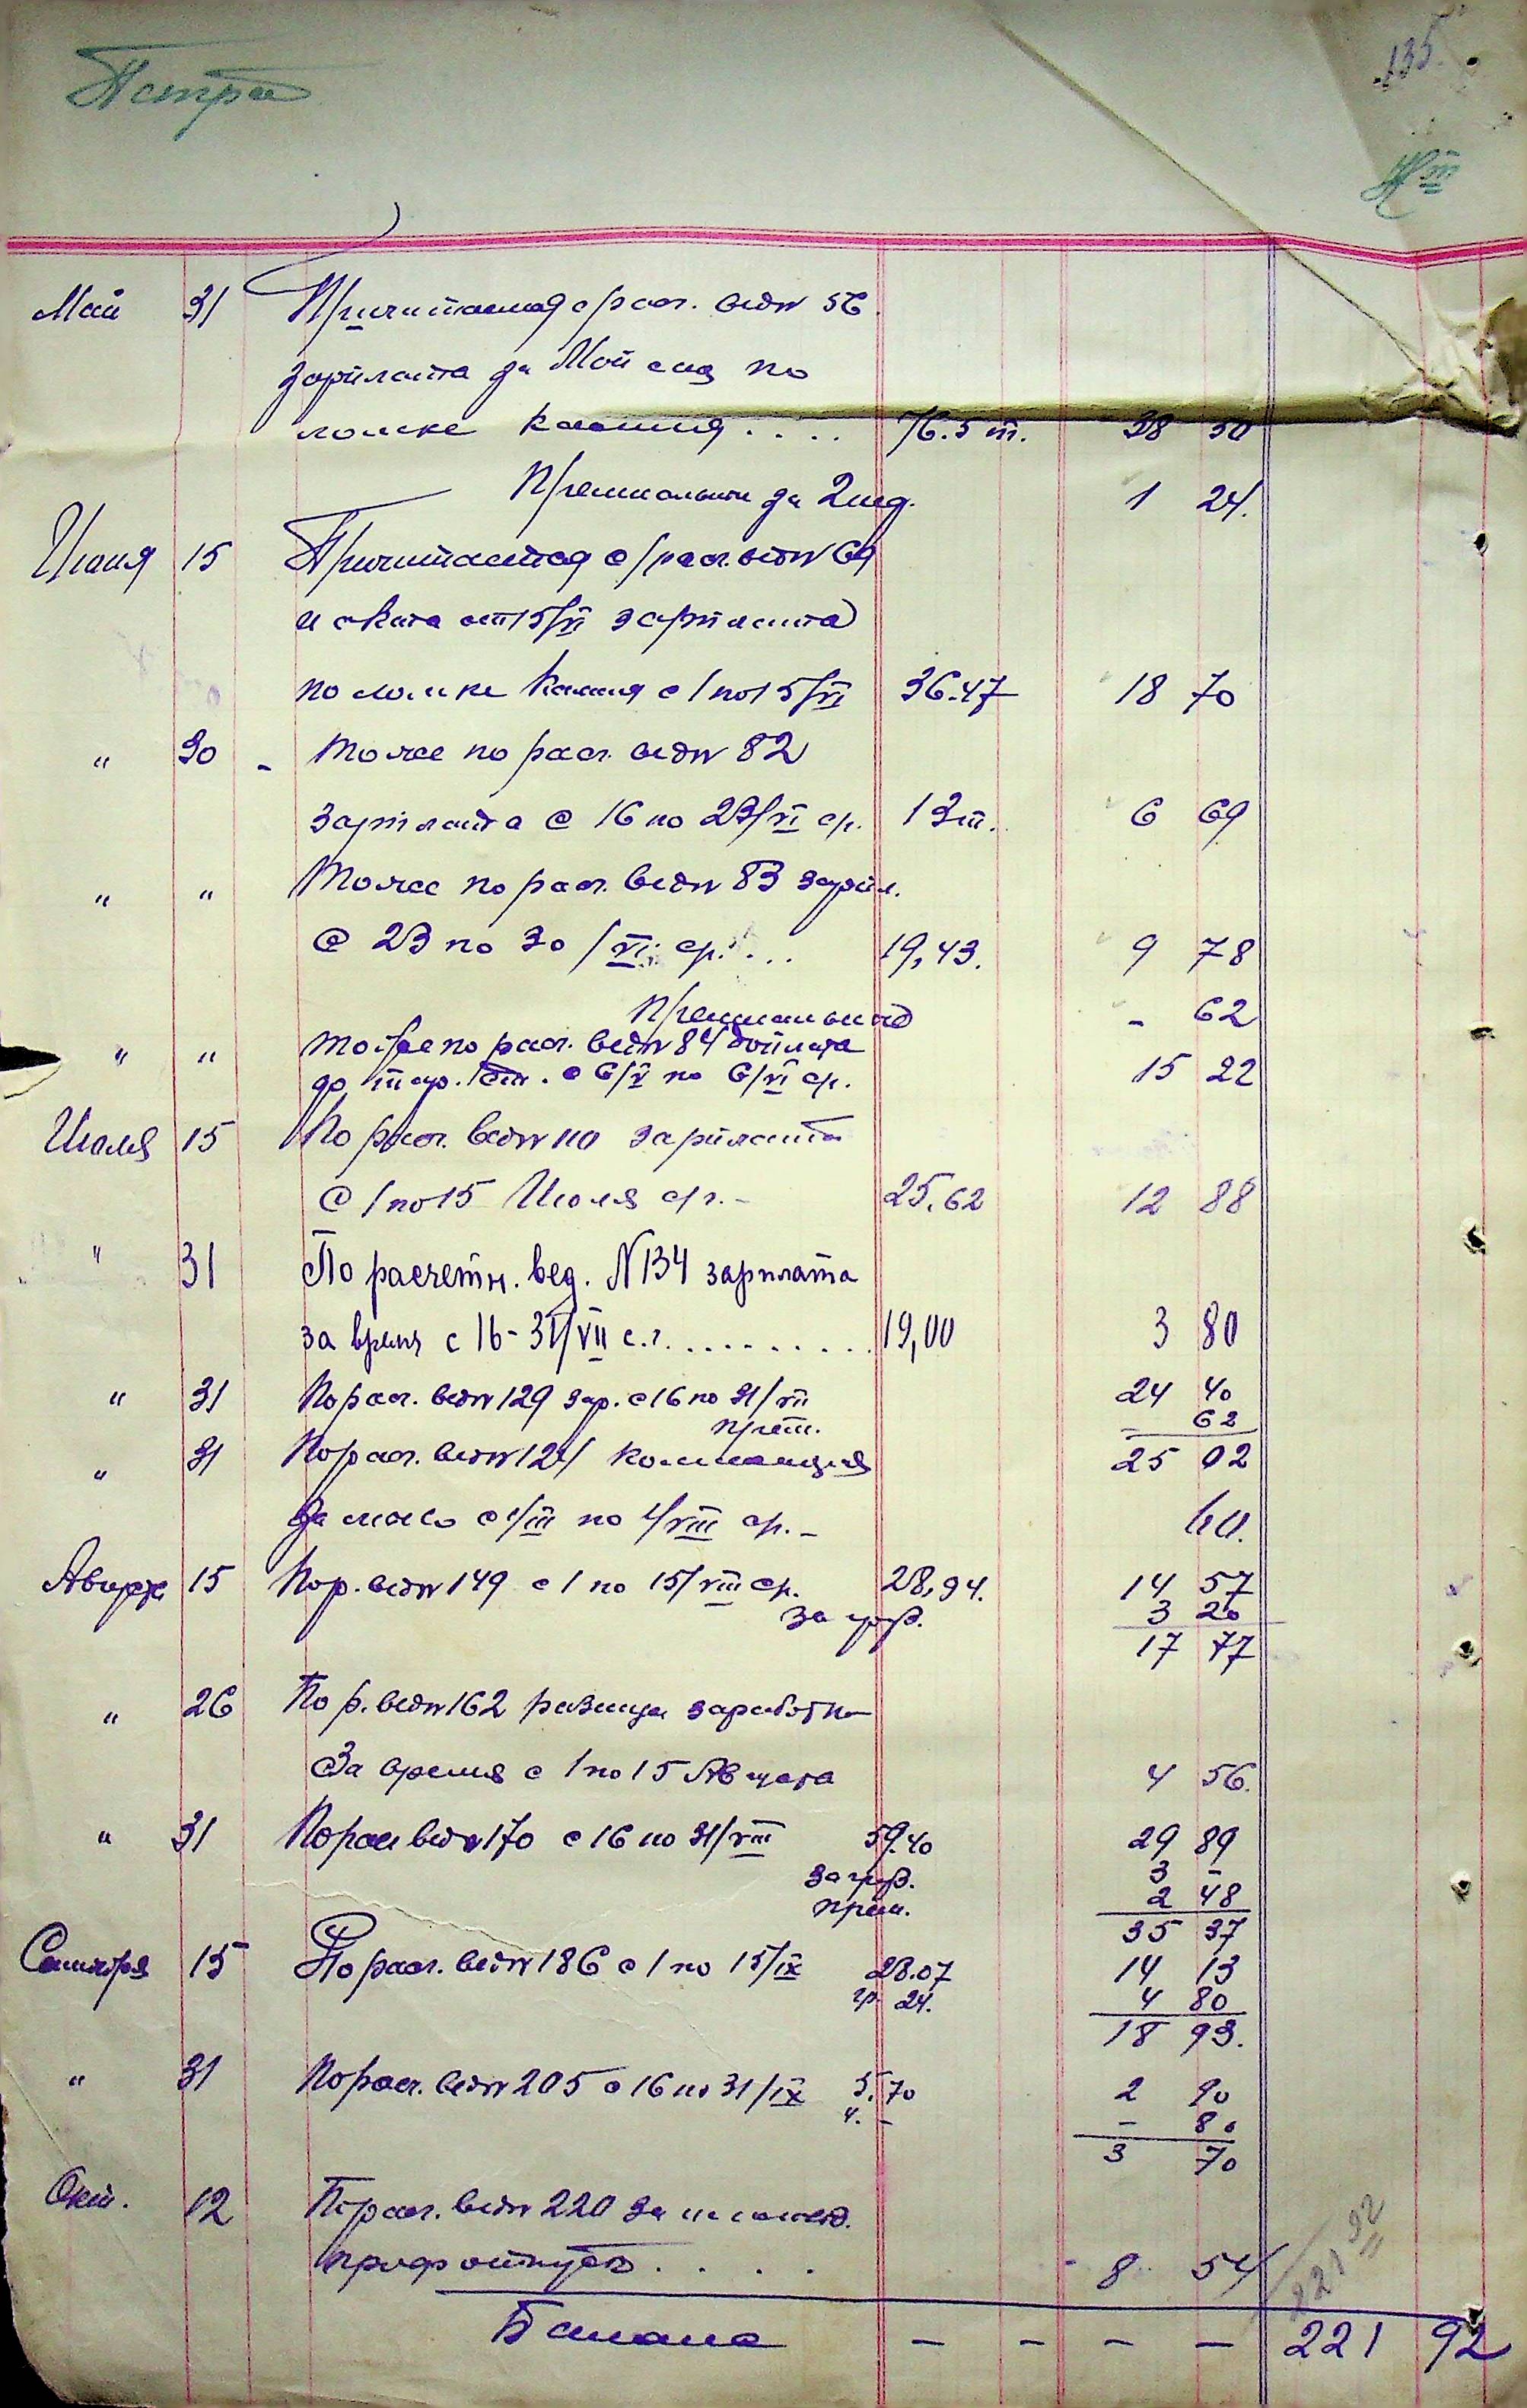 135.
Май 31 Причитающ с/расч. вед№ 56
зарплата за Май сид по
ломке камня . . . . 76.5 т. 38 50
Премиальн за 2 ид. 1 24.
Июня 15 Причитается с/расч. вед№ 69
и акта от 15/VI зарплата
по ломке камня с 1 по 15/VI 36.47 18 70
" 30 - Тоже по расч. вед№ 82
зарплата с 16 по 23/VI ср. 13 т. 6 69
" " Тоже по расч. вед№ 83 зарпл.
с 23 по 30/VI ср. . . . 19,43. 9 78
Премиальные - 62
" " Тоже по расч. вед№ 84 доплата
до тар. с 6/V по 6/VI ср. 15 22
Июля 15 По расч. вед№ 110 зарплата
с 1 по 15 Июля ср. - 25.62 12 88
" 31 По расчетн. вед. № 134 зарплата
за время с 16 - 31/VII с.г. . . . . . . . . . 19,00 3 80
" 31 По расч. вед№ 129 зар. с 16 по 31/VII 24 40
прем. - 62
" 31 По расч. вед№ 124 компенсация 25 02
за мясо с 1/III по 1/VIII ср. - 60.
Август 15 По р. вед№ 149 с 1 по 15/VIII ср. 28,94. 14 57
за груз. 3 20
17 77
" 26 По р. вед№ 162 разница заработка
За время с 1 по 15 Августа 4 56.
" 31 По расч вед№ 170 с 16 по 31/VIII 59.40 29 89
за груз. 3 -
прем. 2 48
35 37
Сентября 15 По расч. вед№ 186 с 1 по 15/IX 28.07 14 13
гр. 24. 4 80
18 93.
" 31 По расч. вед№ 205 с 16 по 31/IX 5.70 2 90
4. - - 80
3 70
Окт. 12 По расч. вед№ 220 за
проф отпуск . . . . - 8 54
221 92
Баланс - - - - 221 92